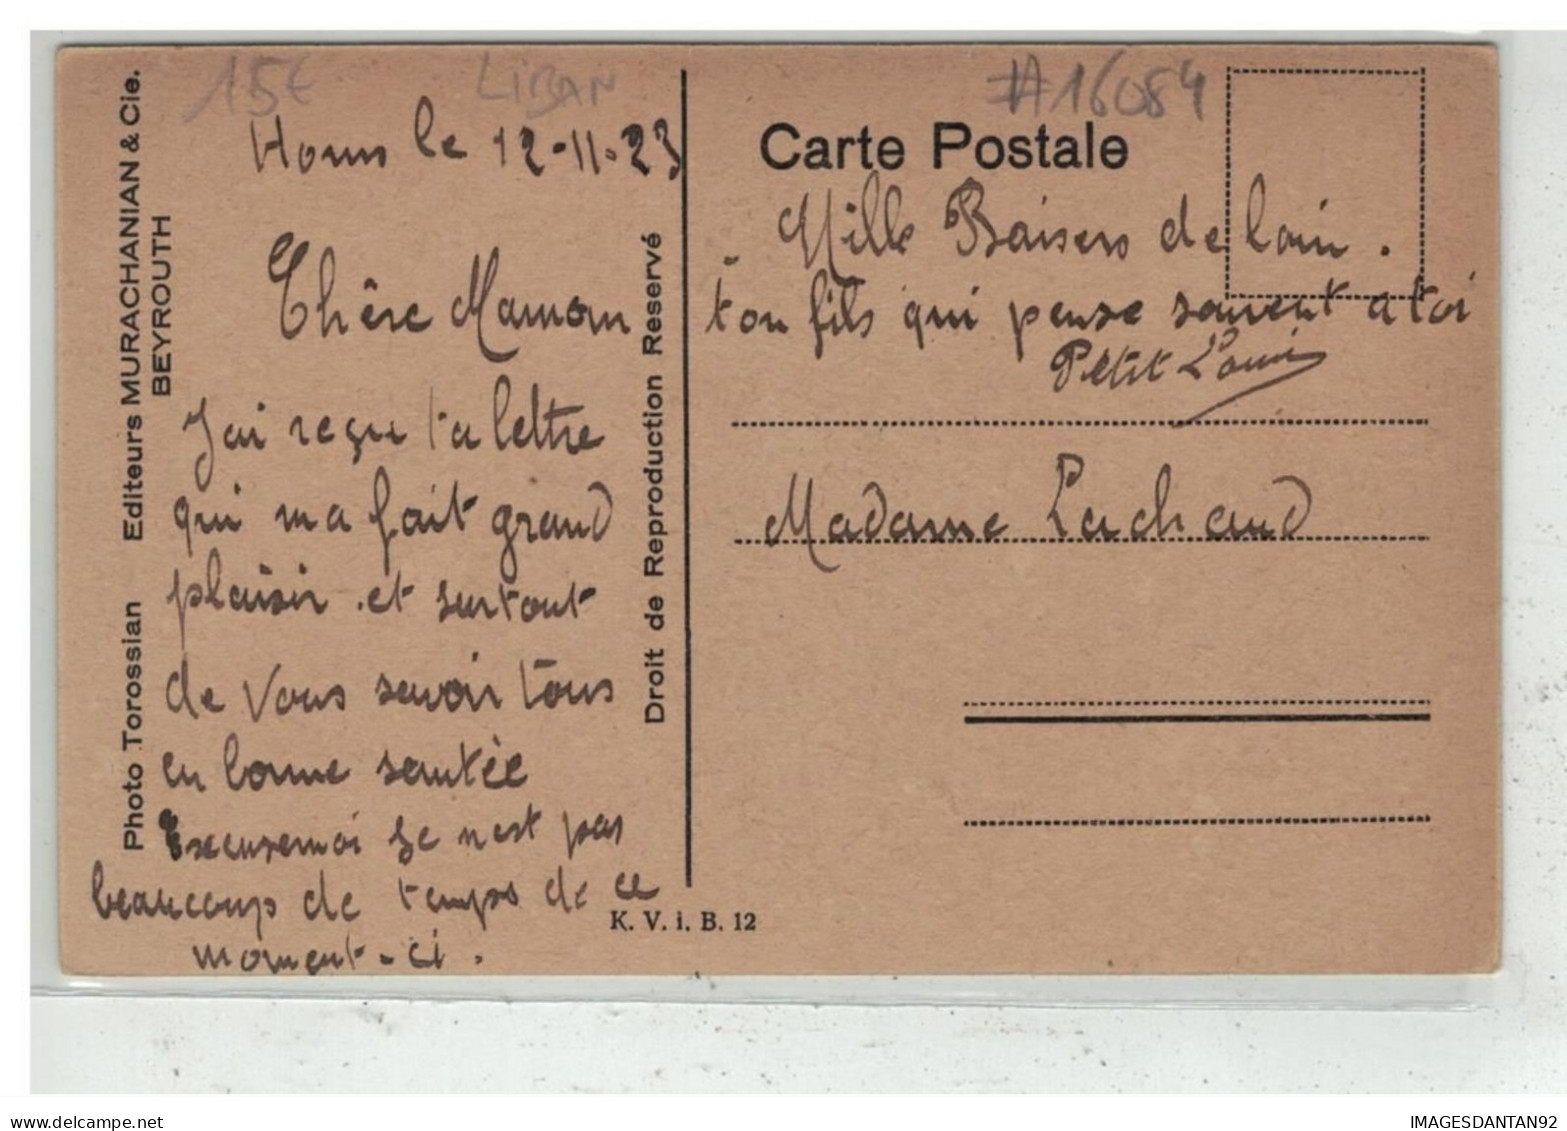 15€
LIBAN
#16084
Homs le 12-11-23
Chère Maman
J'ai reçu ta lettre
qui ma fait grand
plaisir . et surtout
de vous savoir tous
en bonne santée
Excusemoi je n'est pas
beaucoup de temps de ce
moment-ci.
Photo Torossian Editeurs MURACHANIAN & Cie.
BEYROUTH
Droit de Reproduction Reservé
K. V. i. B. 12
Carte Postale
Mille Baisers de loin.
ton fils qui pense souvent a toi
Petit Louis
Madame Lachaud
delcampe.net
IMAGESDANTAN92